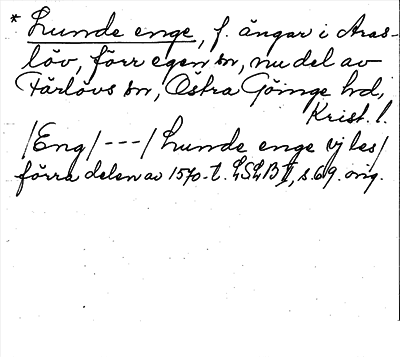 * Lunde enge, f. ängar i Aras-
löv, förr egen sn, nu del av
Färlövs sn, Östra Göinge hd,
Krist. l.
/Eng/ --- / Lunde enge ij les/
förra delen av 1570-t. LSLB II, s. 69. orig.